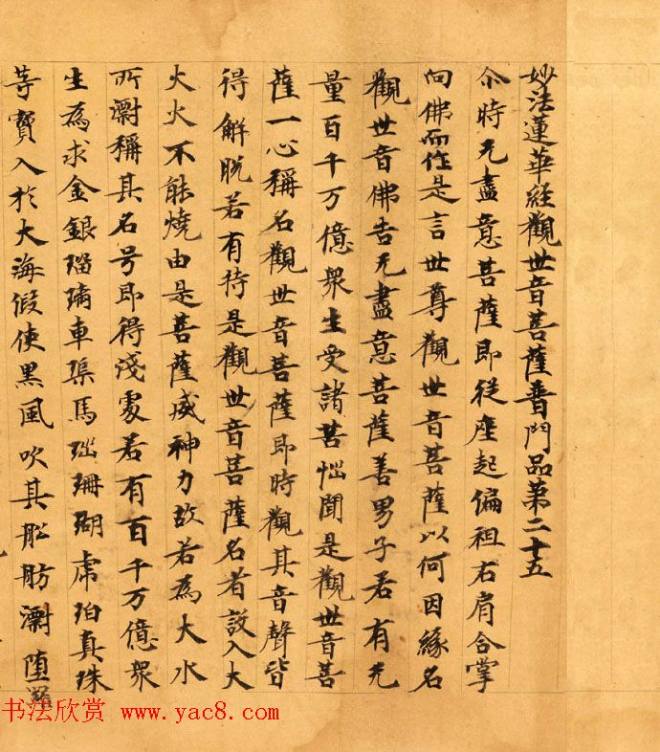 妙法蓮華經觀世音菩薩普門品第二十五
尒時无盡意菩薩即從座起偏袒右肩合掌
向佛而作是言世尊觀世音菩薩以何因緣名
觀世音佛告无盡意菩薩善男子若有无
量百千万億衆生受諸苦惱聞是觀世音菩
薩一心稱名觀世音菩薩即時觀其音聲皆
得解脫若有持是觀世音菩薩名者設入大
火火不能燒由是菩薩威神力故若為大水
所漂稱其名号即得淺處若有百千万億衆
生為求金銀瑠璃車𤦲馬瑙珊瑚虎珀真珠
等寳入於大海假使黑風吹其舩舫漂堕
书法欣赏 www.yac8.com